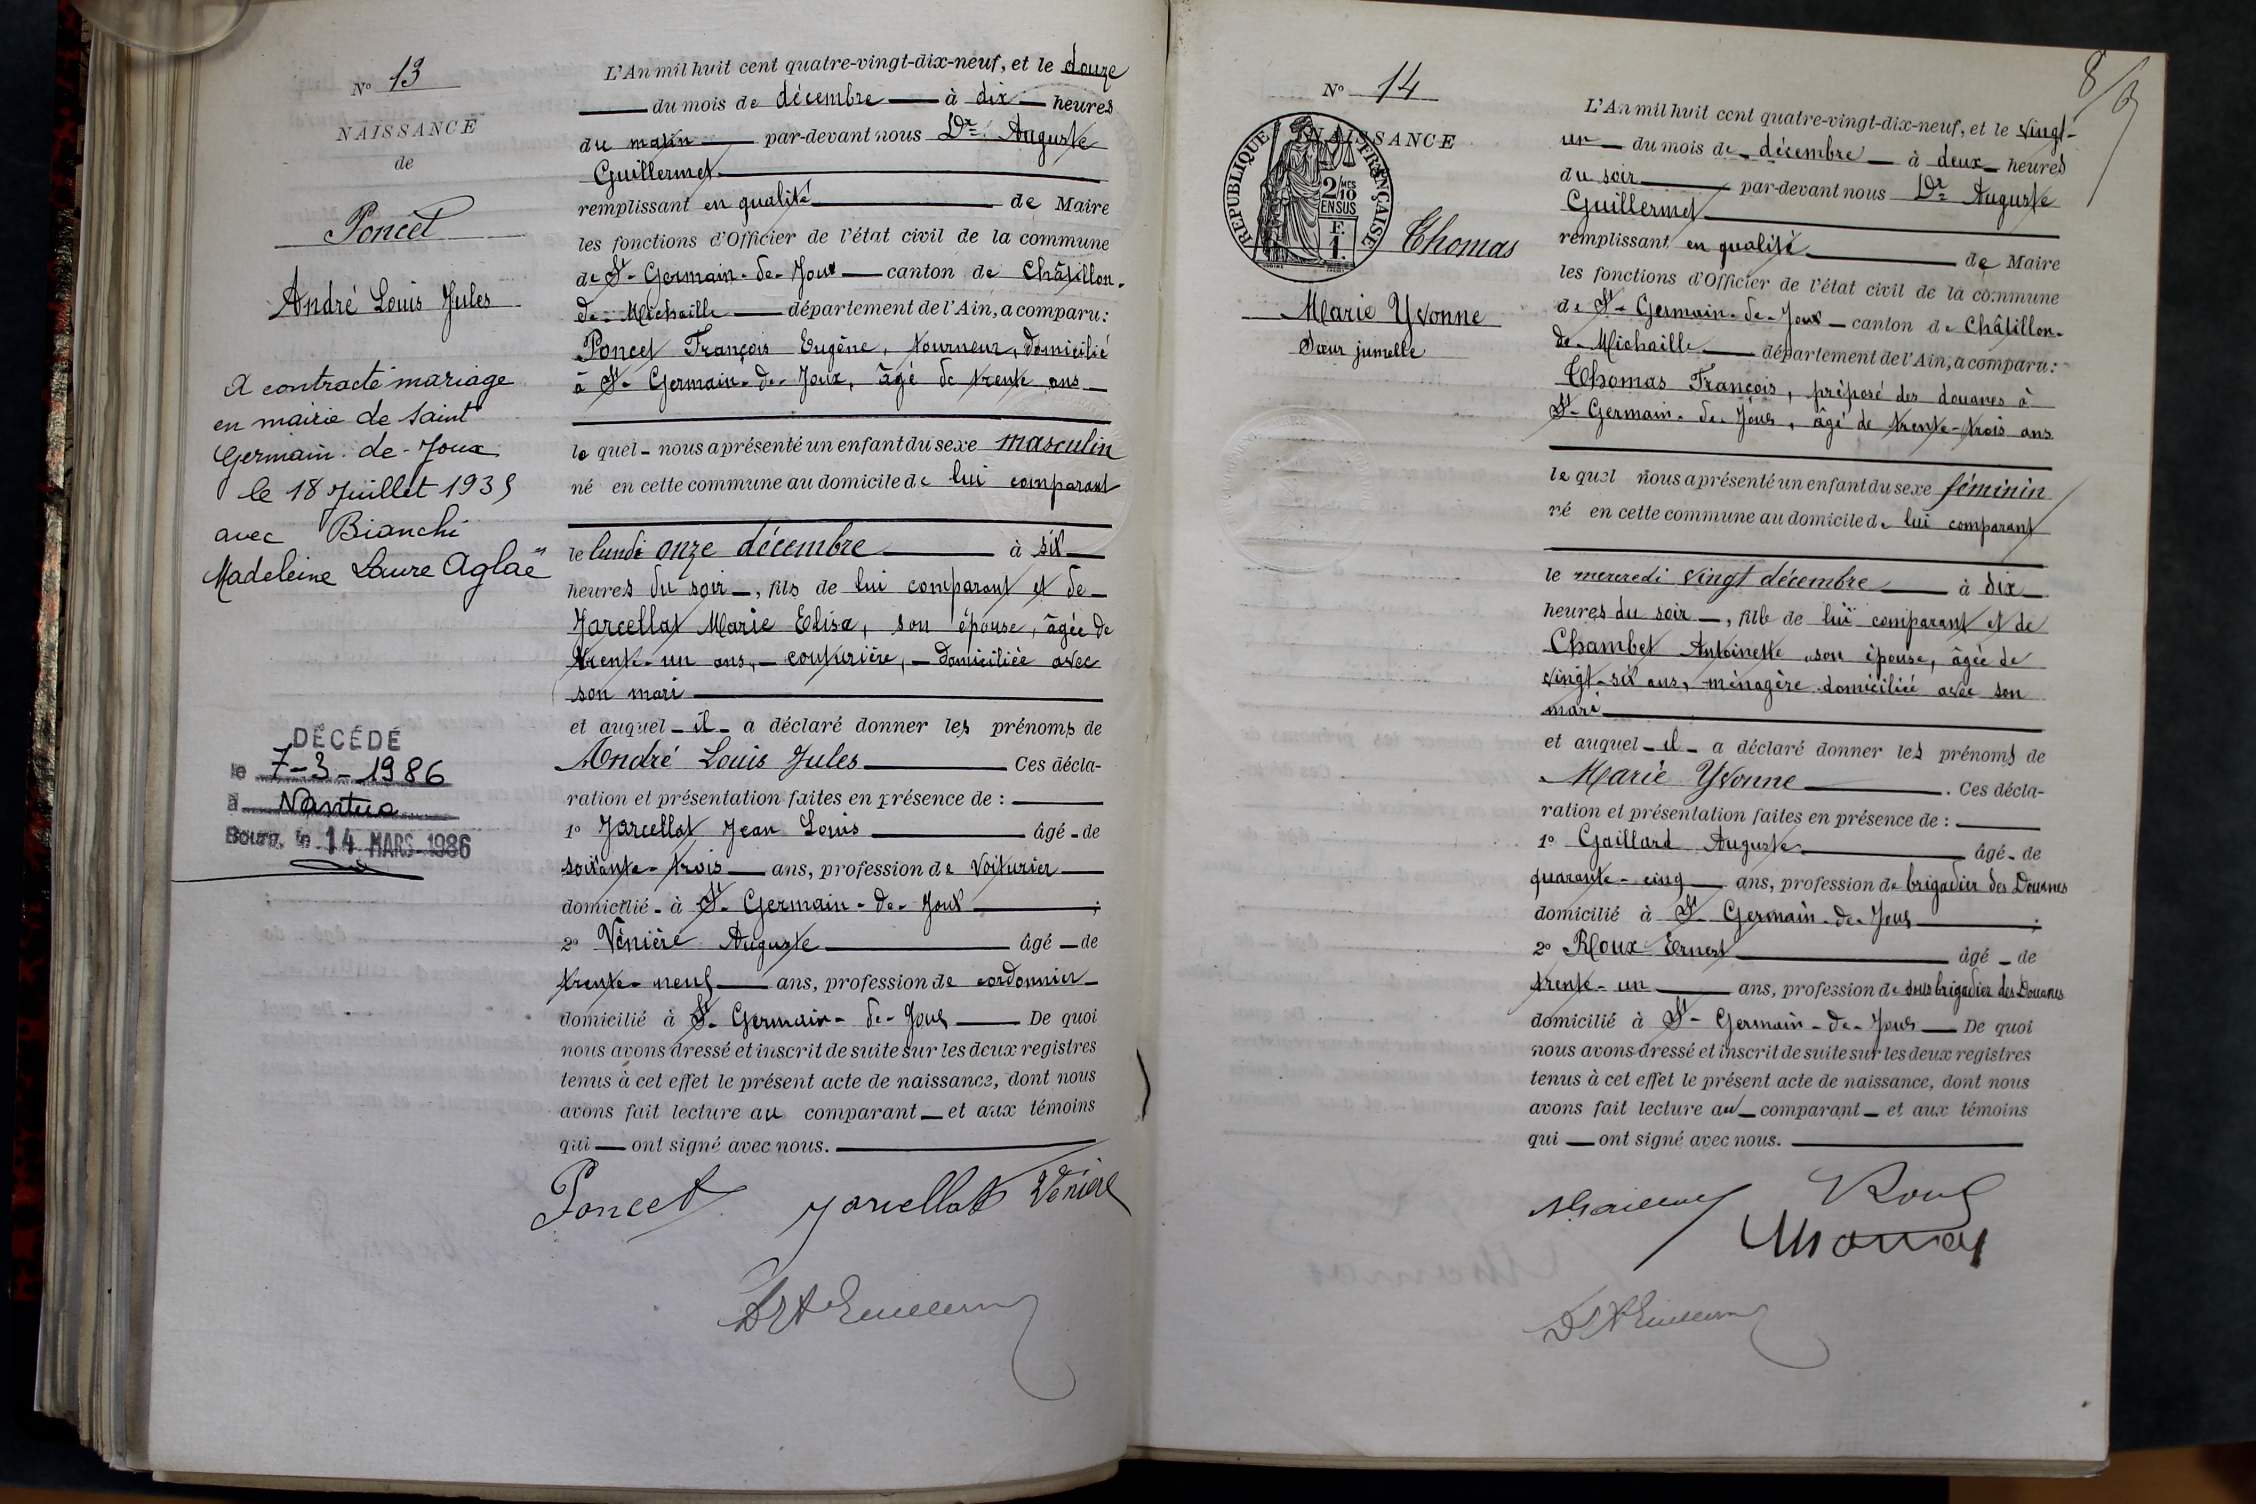 Nº 13
NAISSANCE
de
Poncet
André Louis Jules
A contracté mariage
en mairie de Saint
Germain-de-Joux
le 18 Juillet 1935
avec Bianchi
Madeleine Laure Aglaë
DÉCÉDÉ
le 7-3-1986
à Nantua
Bourg, le 14 MARS 1986
L'An mil huit cent quatre-vingt-dix-neuf, et le douze
du mois de décembre à dix heures
du matin par-devant nous Dr Auguste
Guillermet
remplissant en qualité de Maire
les fonctions d'Officier de l'état civil de la commune
de St-Germain-de-Joux canton de Châtillon-
de-Michaille département de l'Ain, a comparu:
Poncet François Eugène, tourneur, domicilié
à St-Germain-de-Joux, âgé de trente ans
lequel nous a présenté un enfant du sexe masculin
né en cette commune au domicile de lui comparant
le lundi onze décembre à six
heures du soir, fils de lui comparant et de
Jarcellat Marie Elisa, son épouse, âgée de
trente-un ans, couturière, domiciliée avec
son mari
et auquel il a déclaré donner les prénoms de
André Louis Jules Ces décla-
ration et présentation faites en présence de :
1º Jarcellat Jean Louis âgé de
soixante-trois ans, profession de voiturier
domicilié à St-Germain-de-Joux ;
2º Vénière Auguste âgé de
trente-neuf ans, profession de cordonnier
domicilié à St-Germain-de-Joux De quoi
nous avons dressé et inscrit de suite sur les deux registres
tenus à cet effet le présent acte de naissance, dont nous
avons fait lecture au comparant et aux témoins
qui ont signé avec nous.
Poncet Jarcellat Vénière
8/9
Nº 14
NAISSANCE
REPUBLIQUE FRANÇAISE
2/10 MES
EN SUS
F.
1.
Thomas
Marie Yvonne
Sœur jumelle
L'An mil huit cent quatre-vingt-dix-neuf, et le vingt-
un du mois de décembre à deux heures
du soir par-devant nous Dr Auguste
Guillermet
remplissant en qualité de Maire
les fonctions d'Officier de l'état civil de la commune
de St-Germain-de-Joux canton de Châtillon-
de-Michaille département de l'Ain, a comparu:
Thomas François, préposé des douanes à
St-Germain-de-Joux, âgé de trente-trois ans
lequel nous a présenté un enfant du sexe féminin
né en cette commune au domicile de lui comparant
le mercredi vingt décembre à dix
heures du soir, fille de lui comparant et de
Chambet Antoinette son épouse, âgée de
vingt-six ans, ménagère domiciliée avec son
mari
et auquel il a déclaré donner les prénoms de
Marie Yvonne. Ces décla-
ration et présentation faites en présence de :
1º Gaillard Auguste âgé de
quarante-cinq ans, profession de brigadier des Douanes
domicilié à St-Germain-de-Joux ;
2º Roux Ernest âgé de
trente-un ans, profession de sous brigadier des Douanes
domicilié à St-Germain-de-Joux De quoi
nous avons dressé et inscrit de suite sur les deux registres
tenus à cet effet le présent acte de naissance, dont nous
avons fait lecture au comparant et aux témoins
qui ont signé avec nous.
Roux
Thomas